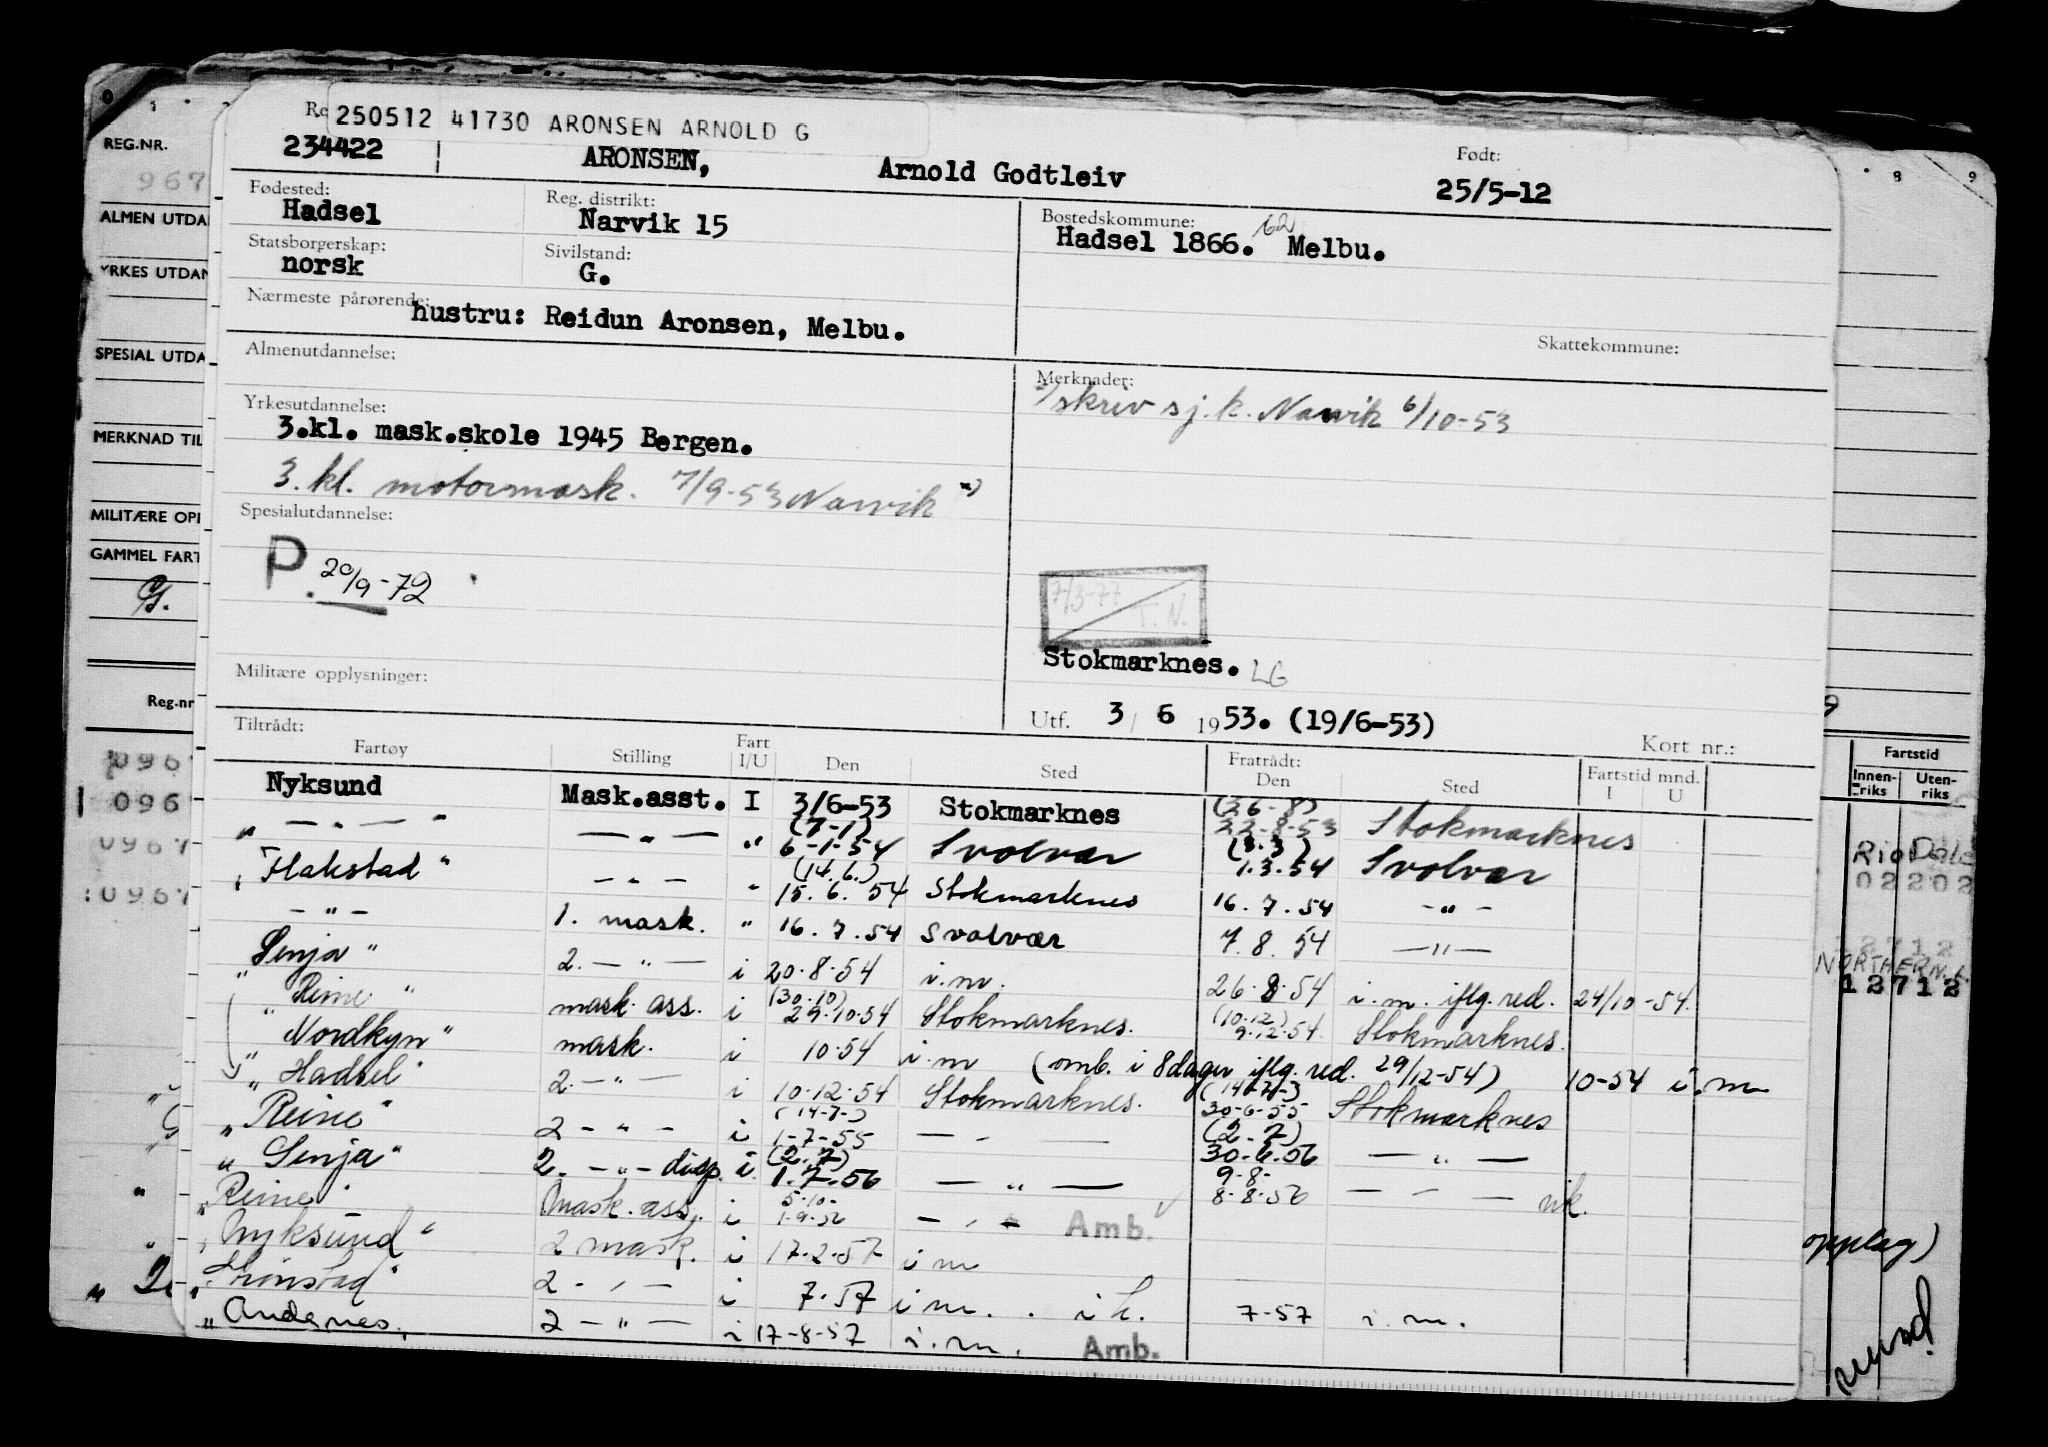 250512 41730 ARONSEN ARNOLD G
234422 ARONSEN, Arnold Godtleiv Født: 25/5-12
Fødested: Hadsel Reg. distrikt: Narvik 15 Bostedskommune: Hadsel 1866. Melbu.
Statsborgerskap: norsk Sivilstand: G.
Nærmeste pårørende: hustru: Reidun Aronsen, Melbu.
Skattekommune:
Almenutdannelse:
Merknader:
skriv sj.k. Narvik 6/10-53
Yrkesutdannelse:
3.kl. mask.skole 1945 Bergen.
3. kl. motormask. 7/9-53 Narvik
Spesialutdannelse:
P. 20/9-72
7/3-77 T.N.
Stokmarknes. LG
Militære opplysninger:
Utf. 3/6 1953. (19/6-53)
Kort nr.:
Tiltrådt: Fratrådt:
Fartøy Stilling Fart I/U Den Sted Den Sted Fartstid mnd. I U
Nyksund Mask.asst. I 3/6-53 Stokmarknes (26-8) 22-8-53 Stokmarknes
" — " — " — " — " (7-1) 6-1-54 Svolvær (3.3) 1.3.54 Svolvær
" Flakstad " — " — " (14.6.) 15.6.54 Stokmarknes 16.7.54 — " —
— " — 1. mask. " 16.7.54 Svolvær 7.8.54 — " —
" Senja " 2. — " — i 20.8.54 i.m. 26.8.54 i.m. iflg. red. 24/10-54.
" Reine " mask. ass. i (30.10) 29.10.54 Stokmarknes. (10.12) 9.12.54 Stokmarknes.
" Nordkyn " mask. i 10.54 i.m (omb. i 8 dager iflg. red. 29/12-54) 10-54 i.m
" Hadsel " 2. — " — i 10.12.54 Stokmarknes. 30-6-55 Stokmarknes
" Reine " 2 — " — i (14-7-) 1-7-55 — " — (2.7) 30.6.56 — " —
" Senja " 2. — " — disp. i. (2.7) 1.7.56 — " — 9-8- 8-8-56 — " —
" Reine " Mask. ass. i 5-10- 1-9-56 — " — Amb.
" Nyksund " 2 mask. i 17.2.57 i m
2 — " — i 7.57 i m. 7-57 i.m.
" Andenes. 2 — " — i 17-8-57 i.m. Amb.
REG.NR.
967
ALMEN UTDA
YRKES UTDAN
SPESIAL UTDA
MERKNAD TIL
MILITÆRE OPP
GAMMEL FART
G.
Reg.nr
096
096
0967
0967
8 9
Fartstid
Innen-riks Uten-riks
Rio Dale
02202
NORTHERN.L.
12712
opplag)